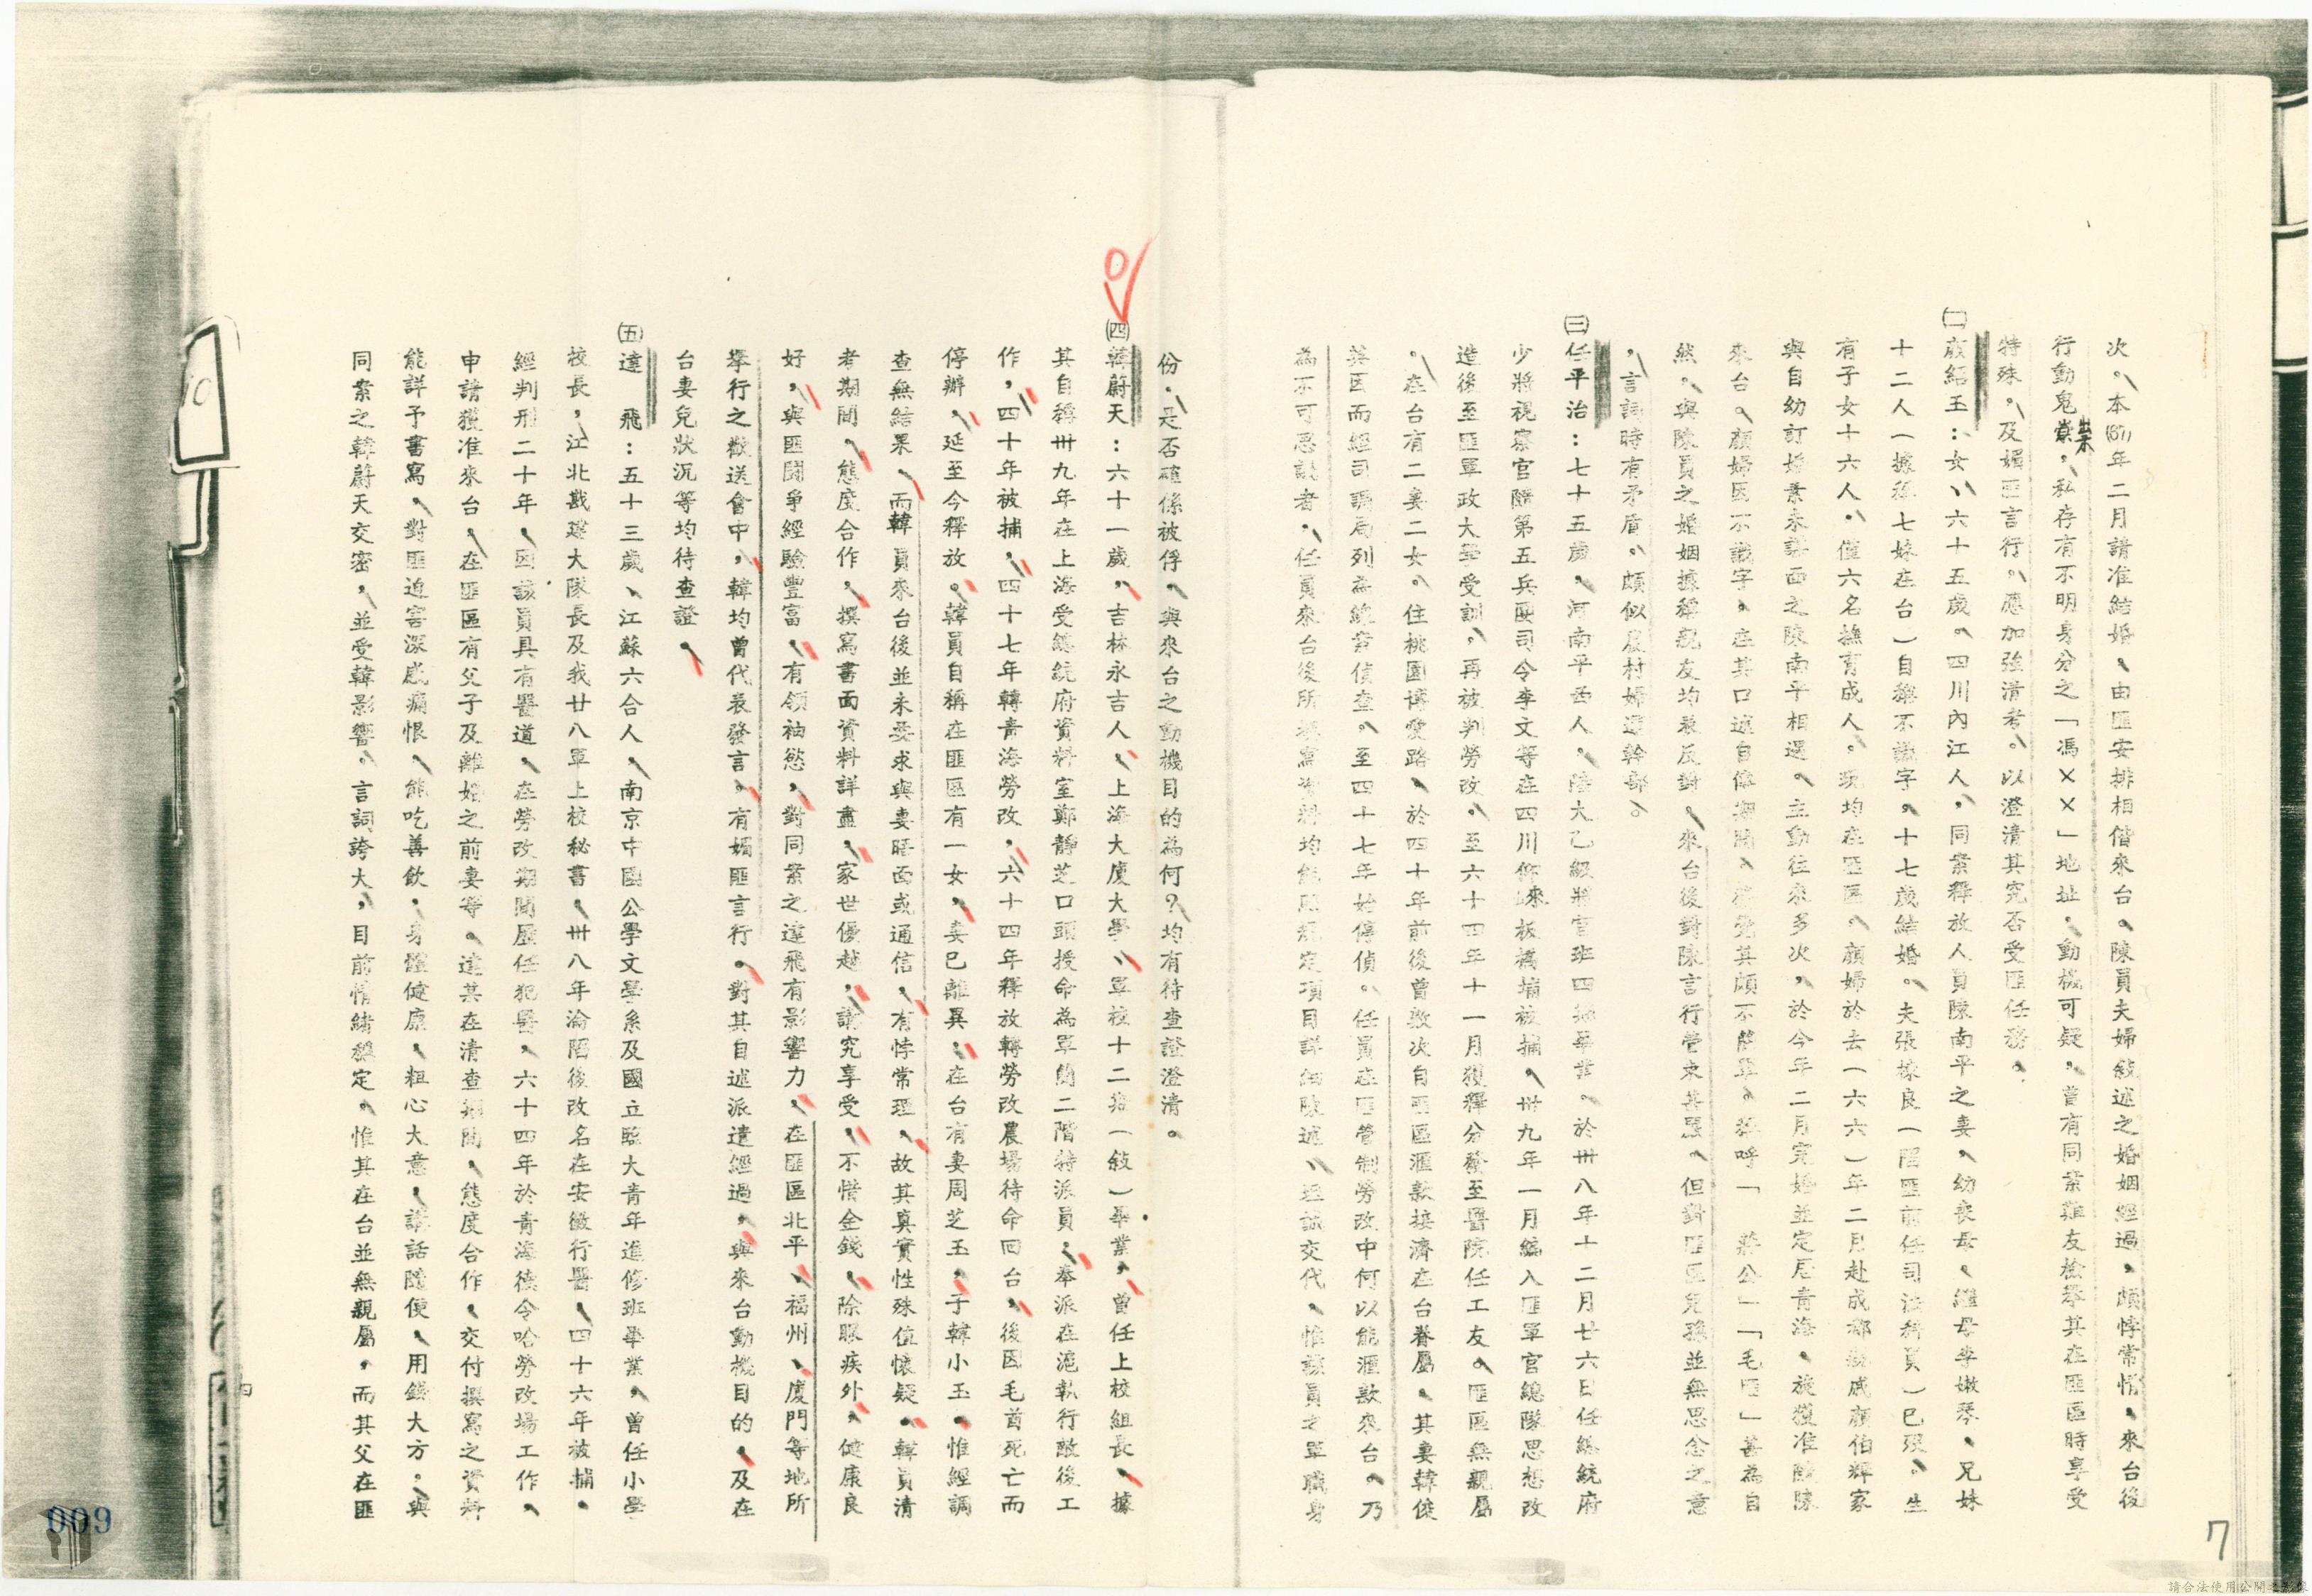 次。本(67)年二月請准結婚、由匪安排相偕來台。陳員夫婦敍述之婚姻經過，頗悖常情，來台後
行動鬼祟，私存有不明身分之「馮××」地址，動機可疑，曾有同案難友檢舉其在匪區時享受
特殊。及媚匪言行。應加強清考。以澄清其究否受匪任務。
㈡顏紹玉：女、六十五歲。四川內江人，同案釋放人員陳南平之妻，幼喪母，繼母李嫩琴，兄妹
十二人（據稱七妹在台）自稱不識字，十七歲結婚。夫張棟良（陷匪前任司法科員）已歿。生
有子女十六人，僅六名撫育成人。現均在匪區，顏婦於去（六六）年二月赴成都親戚顏伯輝家
與自幼訂婚素未謀面之陳南平相遇，主動往來多次，於今年二月完婚並定居青海，旋獲准隨陳
來台。顏婦因不識字，在其口述自傳期間，發覺其頗不簡單，稱呼「蔣公」「毛匪」甚為自
然，與陳員之婚姻據稱親友均表反對，來台後對陳言行管束甚嚴，但對匪區兒孫並無思念之意
，言詞時有矛盾，頗似農村婦運幹部。
㈢任平治：七十五歲，河南平西人。陸大乙級將官班四期畢業。於卅八年十二月廿六日任總統府
少將視察官隨第五兵團司令李文等在四川邛崍板橋埔被捕，卅九年一月編入匪軍官總隊思想改
造後至匪軍政大學受訓，再被判勞改，至六十四年十一月獲釋分發至醫院任工友。匪區無親屬
。在台有二妻二女。住桃園博愛路，於四十年前後曾數次自匪區滙款接濟在台眷屬，其妻韓傑
英因而經司調局列為線案偵查，至四十七年始停偵。任員在匪管制勞改中何以能滙款來台。乃
為不可思議者，任員來台後所撰寫資料均能照規定項目詳細陳述，坦誠交代，惟該員之軍職身
份，是否確係被俘，與來台之動機目的為何？均有待查證澄清。
㈣韓蔚天：六十一歲，吉林永吉人，上海大廈大學、軍校十二期（敍）畢業，曾任上校組長，據
其自稱卅九年在上海受總統府資料室鄭靜芝口頭授命為單簡二階特派員，奉派在滬執行敵後工
作，四十年被捕，四十七年轉青海勞改，六十四年釋放轉勞改農場待命回台，後因毛酋死亡而
停辦，延至今釋放。韓員自稱在匪區有一女，妻已離異，在台有妻周芝玉，子韓小玉，惟經調
查無結果，而韓員來台後並未要求與妻晤面或通信，有悖常理，故其真實性殊值懷疑，韓員清
考期間，態度合作，撰寫書面資料詳盡，家世優越，講究享受，不惜金錢，除眼疾外，健康良
好，與匪鬪爭經驗豐富，有領袖慾，對同案之達飛有影響力，在匪區北平、福州、廈門等地所
舉行之歡送會中，韓均曾代表發言，有媚匪言行。對其自述派遣經過，與來台動機目的，及在
台妻兒狀況等均待查證。
㈤達　飛：五十三歲、江蘇六合人，南京中國公學文學系及國立臨大青年進修班畢業，曾任小學
校長，江北戡建大隊長及我廿八軍上校秘書，卅八年淪陷後改名在安徽行醫，四十六年被捕，
經判刑二十年，因該員具有醫道，在勞改期間歷任犯醫，六十四年於青海德令哈勞改場工作，
申請獲准來台，在匪區有父子及離婚之前妻等。達某在清查期間，態度合作，交付撰寫之資料
能詳予書寫，對匪迫害深感痛恨，能吃善飲，身體健康，粗心大意，講話隨便，用錢大方，與
同案之韓蔚天交密，並受韓影響。言詞誇大，目前情緒穩定。惟其在台並無親屬，而其父在匪
四
7
009
請合法使用公開之影像